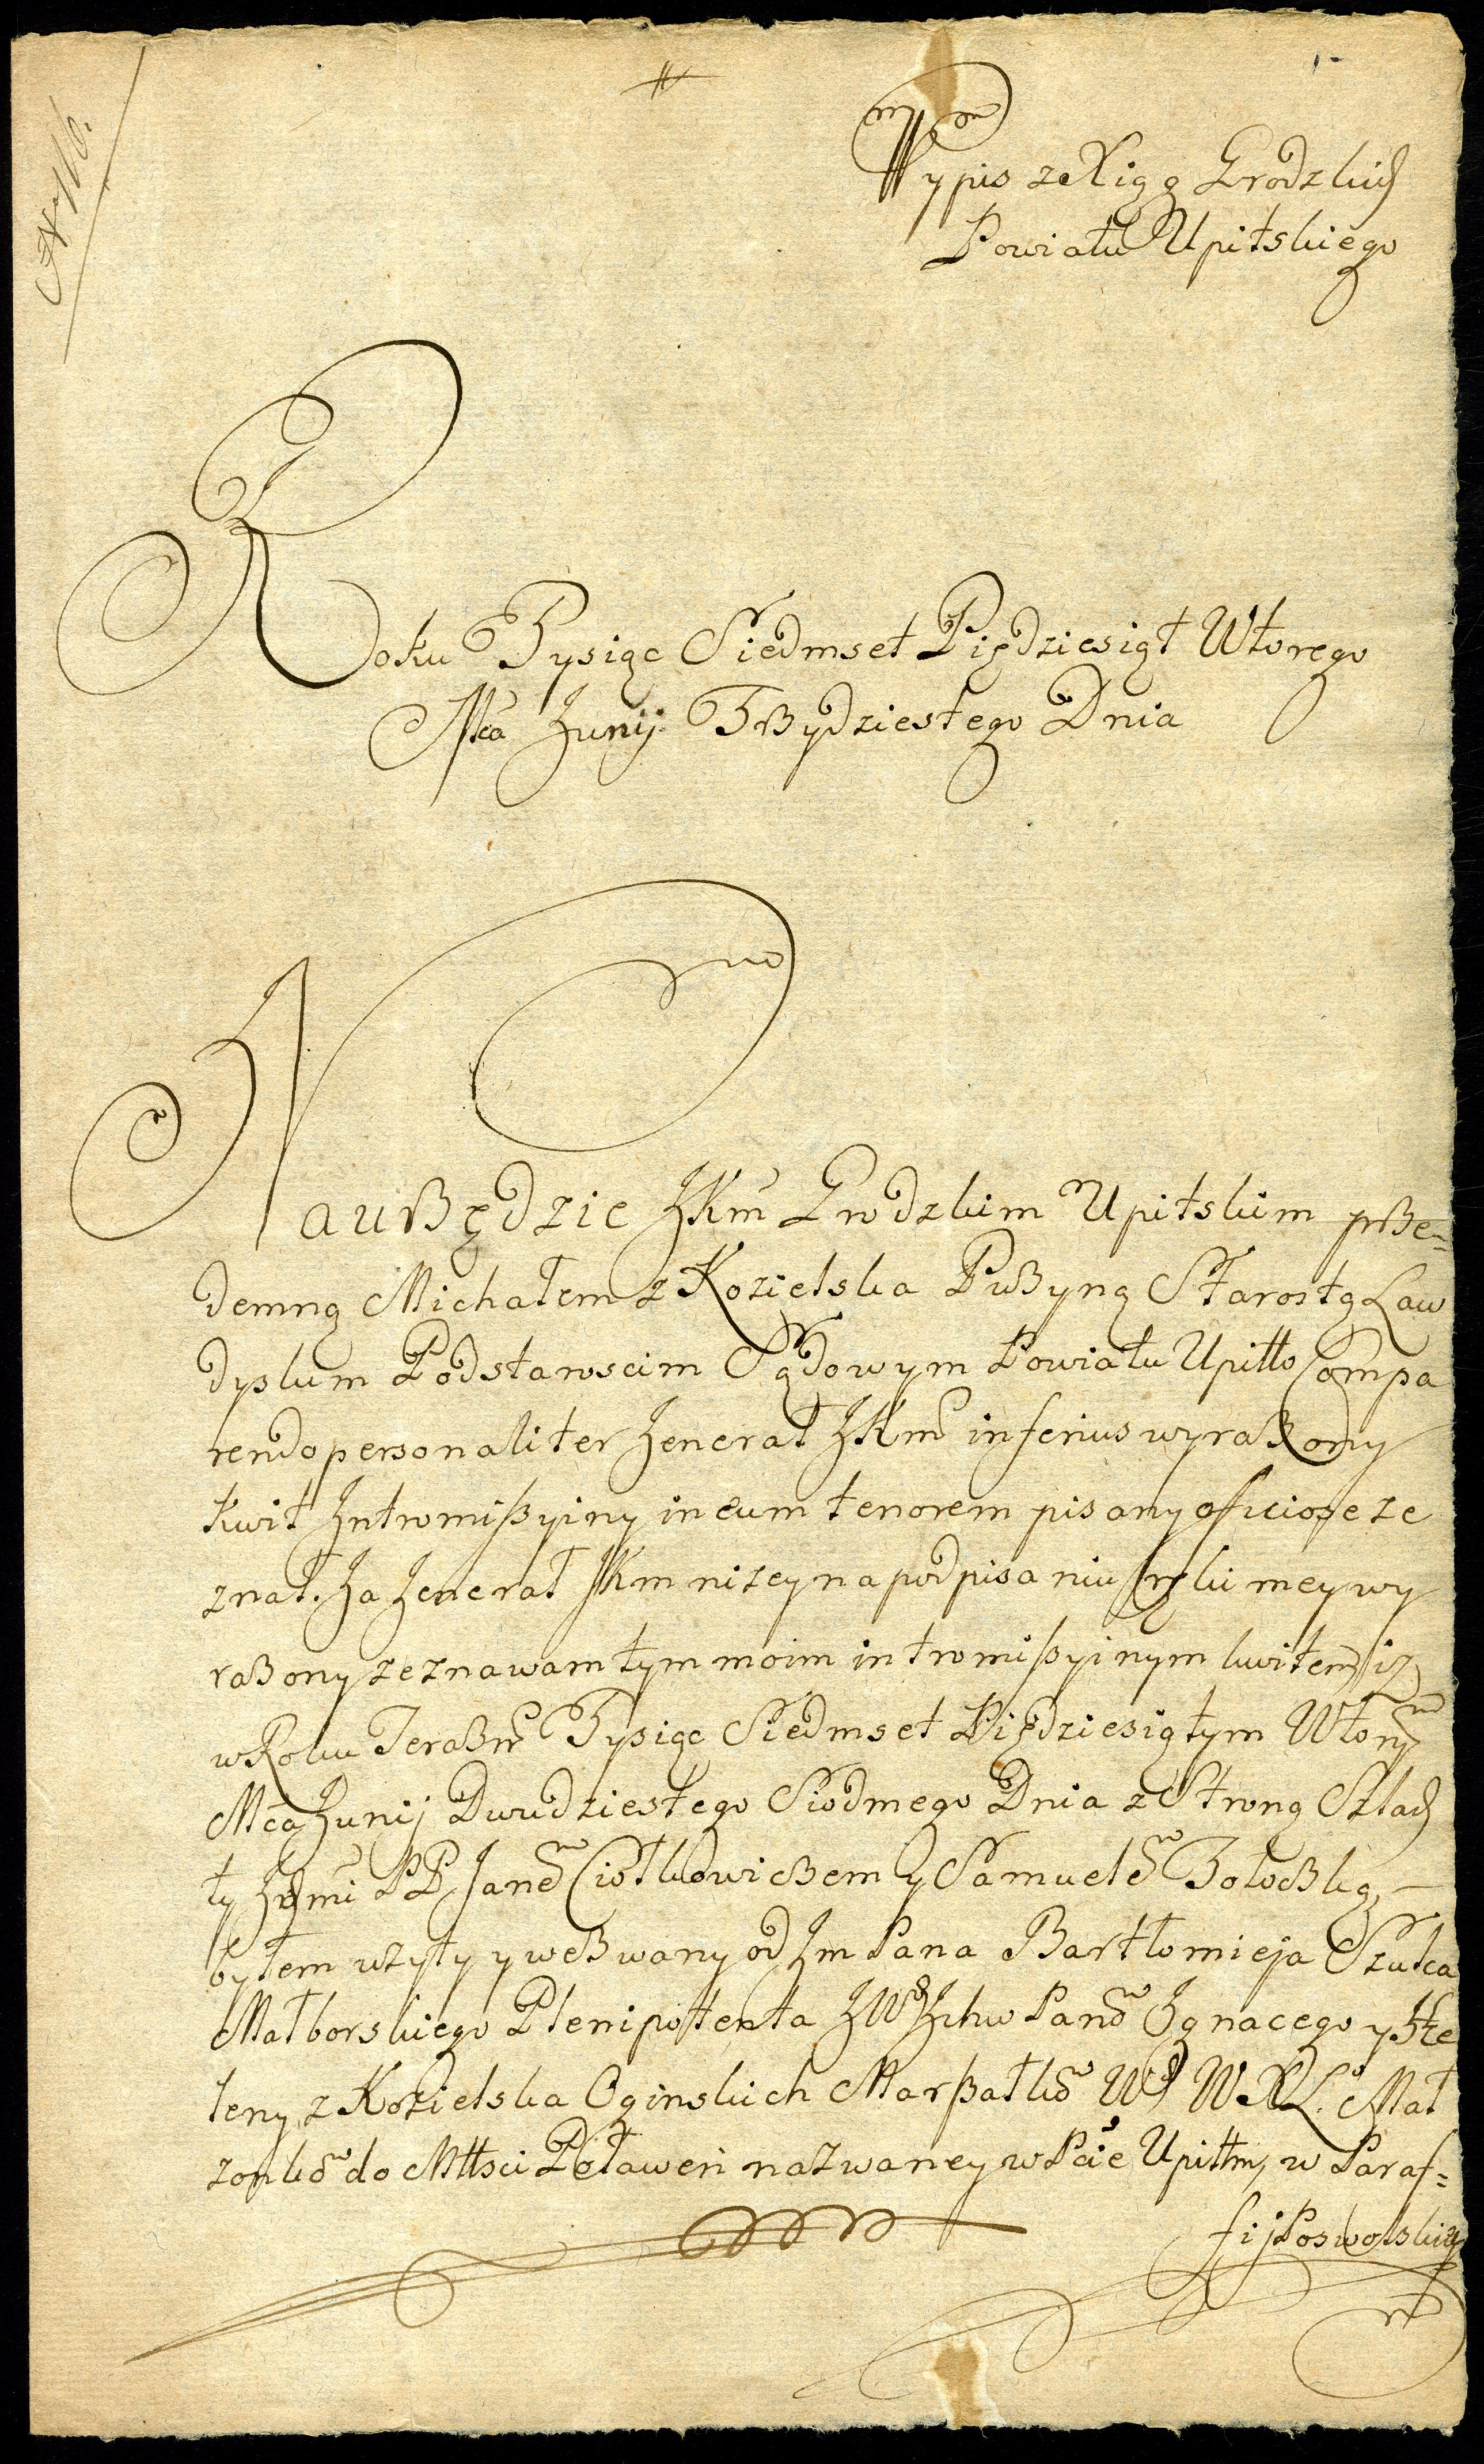 N 116.
Wypis ze Xiąg Grodzkich
Powiatu Upitskiego
Roku Tysiąc Siedmset Piędziesiąt Wtorego
Mca Junij Trzydziestego Dnia
Na urzędzie JKm Grodzkim Upitskim prze=
demną Michałem z Kozielska Puzyną Starostą Law
dyskim Podstaroscim Sądowym Powiatu Upitto Compa
rendo personaliter Jenerał JKm inferius wyrażony
kwit Intromissyiny in eum tenorem pisany oficiose ze
znał. Ja Jenerał JKm niżey na podpisaniu ręki mey wy
rażony zeznawam tym moim intromissyinym kwitem iż
w Roku Teraznm Tysiąc Siedmset Piędziesiątym Wtorym
Mca Junij Dwudziestego Siodmego Dnia z Stroną Szlach
tą Ichmi PP Janem Ciołkowiczem y Samuelem Tołoczką,
byłem użyty y wezwany od Jm Pana Bartłomieja Szulca
Malborskiego Plenipotenta JWW Ichw Panow Ignacego y He
leny z Kozielska Oginskich Marszałkow WW W X L. Mał
zonkow do Mttsci Poławeń nazwaney w Pcie Upittm, w Paraf=
fij Poswolskiey